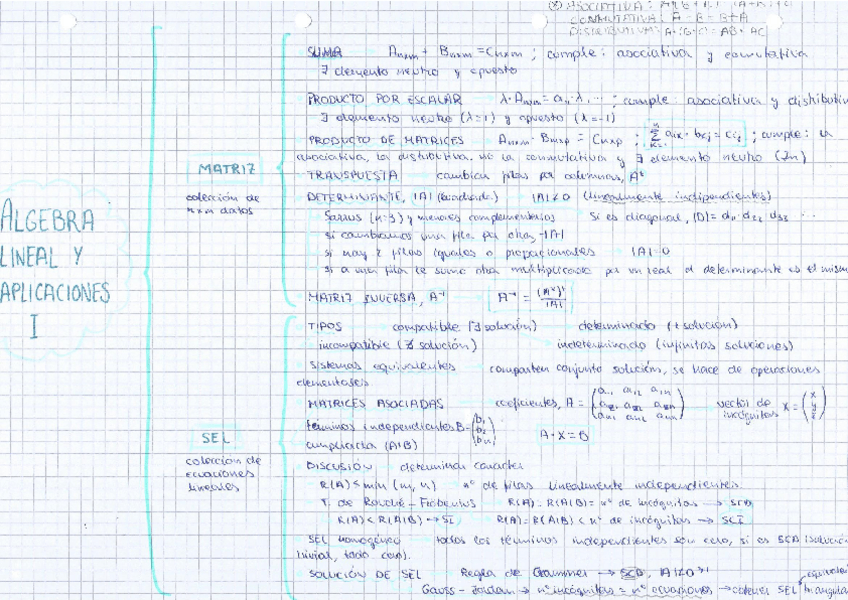 ASOCIATIVA:
CONMUTATIVA: A·B = B+A
DISTRIBUTIVA: A·(B+C) = AB + AC
ÁLGEBRA
LINEAL Y
APLICACIONES
I
MATRIZ
colección de
nxm datos
SUMA Anxm + Bnxm = Cnxm ; cumple: asociativa y conmutativa
∃ elemento neutro y opuesto
PRODUCTO POR ESCALAR λ·Anxm = a₁₁·λ, ... ; cumple: asociativa y distributiva
∃ elemento neutro (λ=1) y opuesto (λ=-1)
PRODUCTO DE MATRICES Anxm · Bmxp = Cnxp ; Σ aik · bkj = cij ; cumple: la
asociativa, la distributiva, no la conmutativa y ∃ elemento neutro (In)
TRANSPUESTA cambiar filas por columnas, Aᵗ
DETERMINANTE, |A| (cuadrada) |A|≠0 (linealmente indipendientes)
Sarrus (n=3) y menores complementarios si es diagonal, |D|= d₁₁·d₂₂·d₃₃ ...
si cambiamos una fila por otra, -|A|
si hay 2 filas iguales o proporcionales |A|=0
si a una fila le sumo otra multiplicada por un real el determinante es el mismo
MATRIZ INVERSA, A⁻¹ A⁻¹ = (A*)ᵗ / |A|
SEL
colección de
ecuaciones
lineales
TIPOS compatible (∃ solución) determinado (1 solución)
incompatible (∄ solución) indeterminado (infinitas soluciones)
Sistemas equivalentes comparten conjunto solución, se hace de operaciones
elementales
MATRICES ASOCIADAS coeficientes, A = (a₁₁ a₁₂ a₁n vector de incógnitas X = (x y z)
términos independientes B = (b₁ b₂ bn)
ampliada (A|B) A·X=B
DISCUSIÓN determinar carácter
R(A) ≤ min (m, n) nº de filas linealmente independientes.
T. de Rouché-Frobenius R(A) = R(A|B) = nº de incógnitas → SCD
R(A) < R(A|B) → SI R(A) = R(A|B) < nº de incógnitas → SCI
SEL homogéneo todos los términos independientes son cero, si es SCD (solución
trivial, todo cero).
SOLUCIÓN DE SEL Regla de Crammer → SCD, |A|≠0
Gauss-Jordan → nº incógnitas = nº ecuaciones → obtener SEL